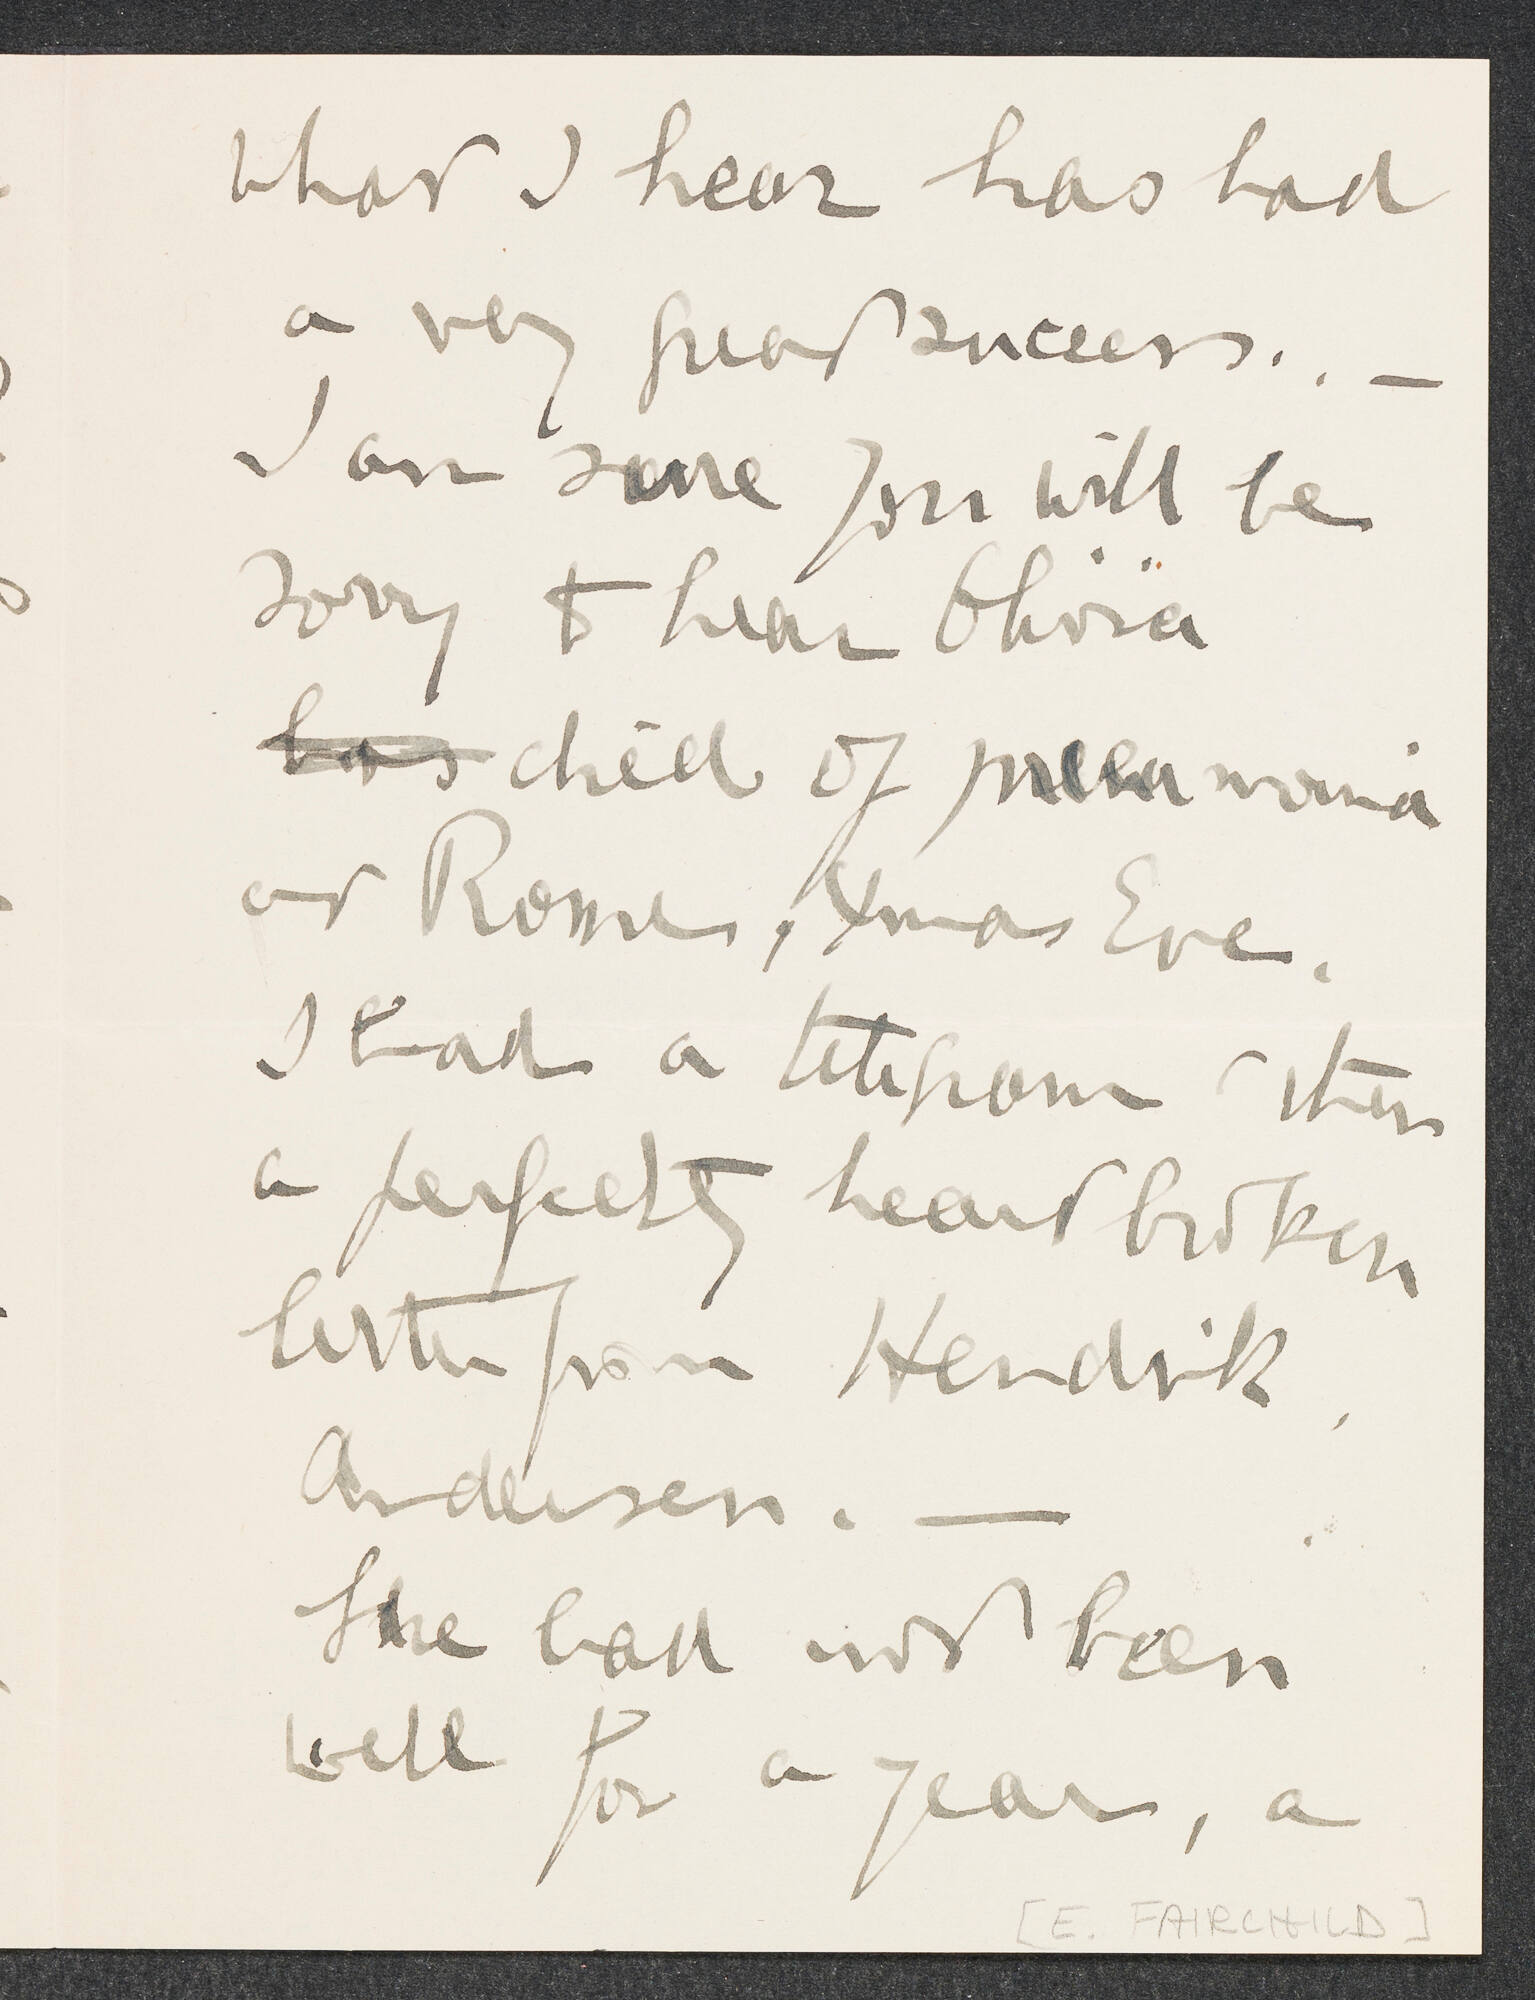 what I hear has had
a very great success. . —
I am sure you will be
sorry to hear Olivia
has died of pneumonia
at Rome, Xmas Eve.
I had a telegram then
a perfectly heart broken
letter from Hendrik
Andersen. —
She had not been
well for a year, a
[E. FAIRCHILD]